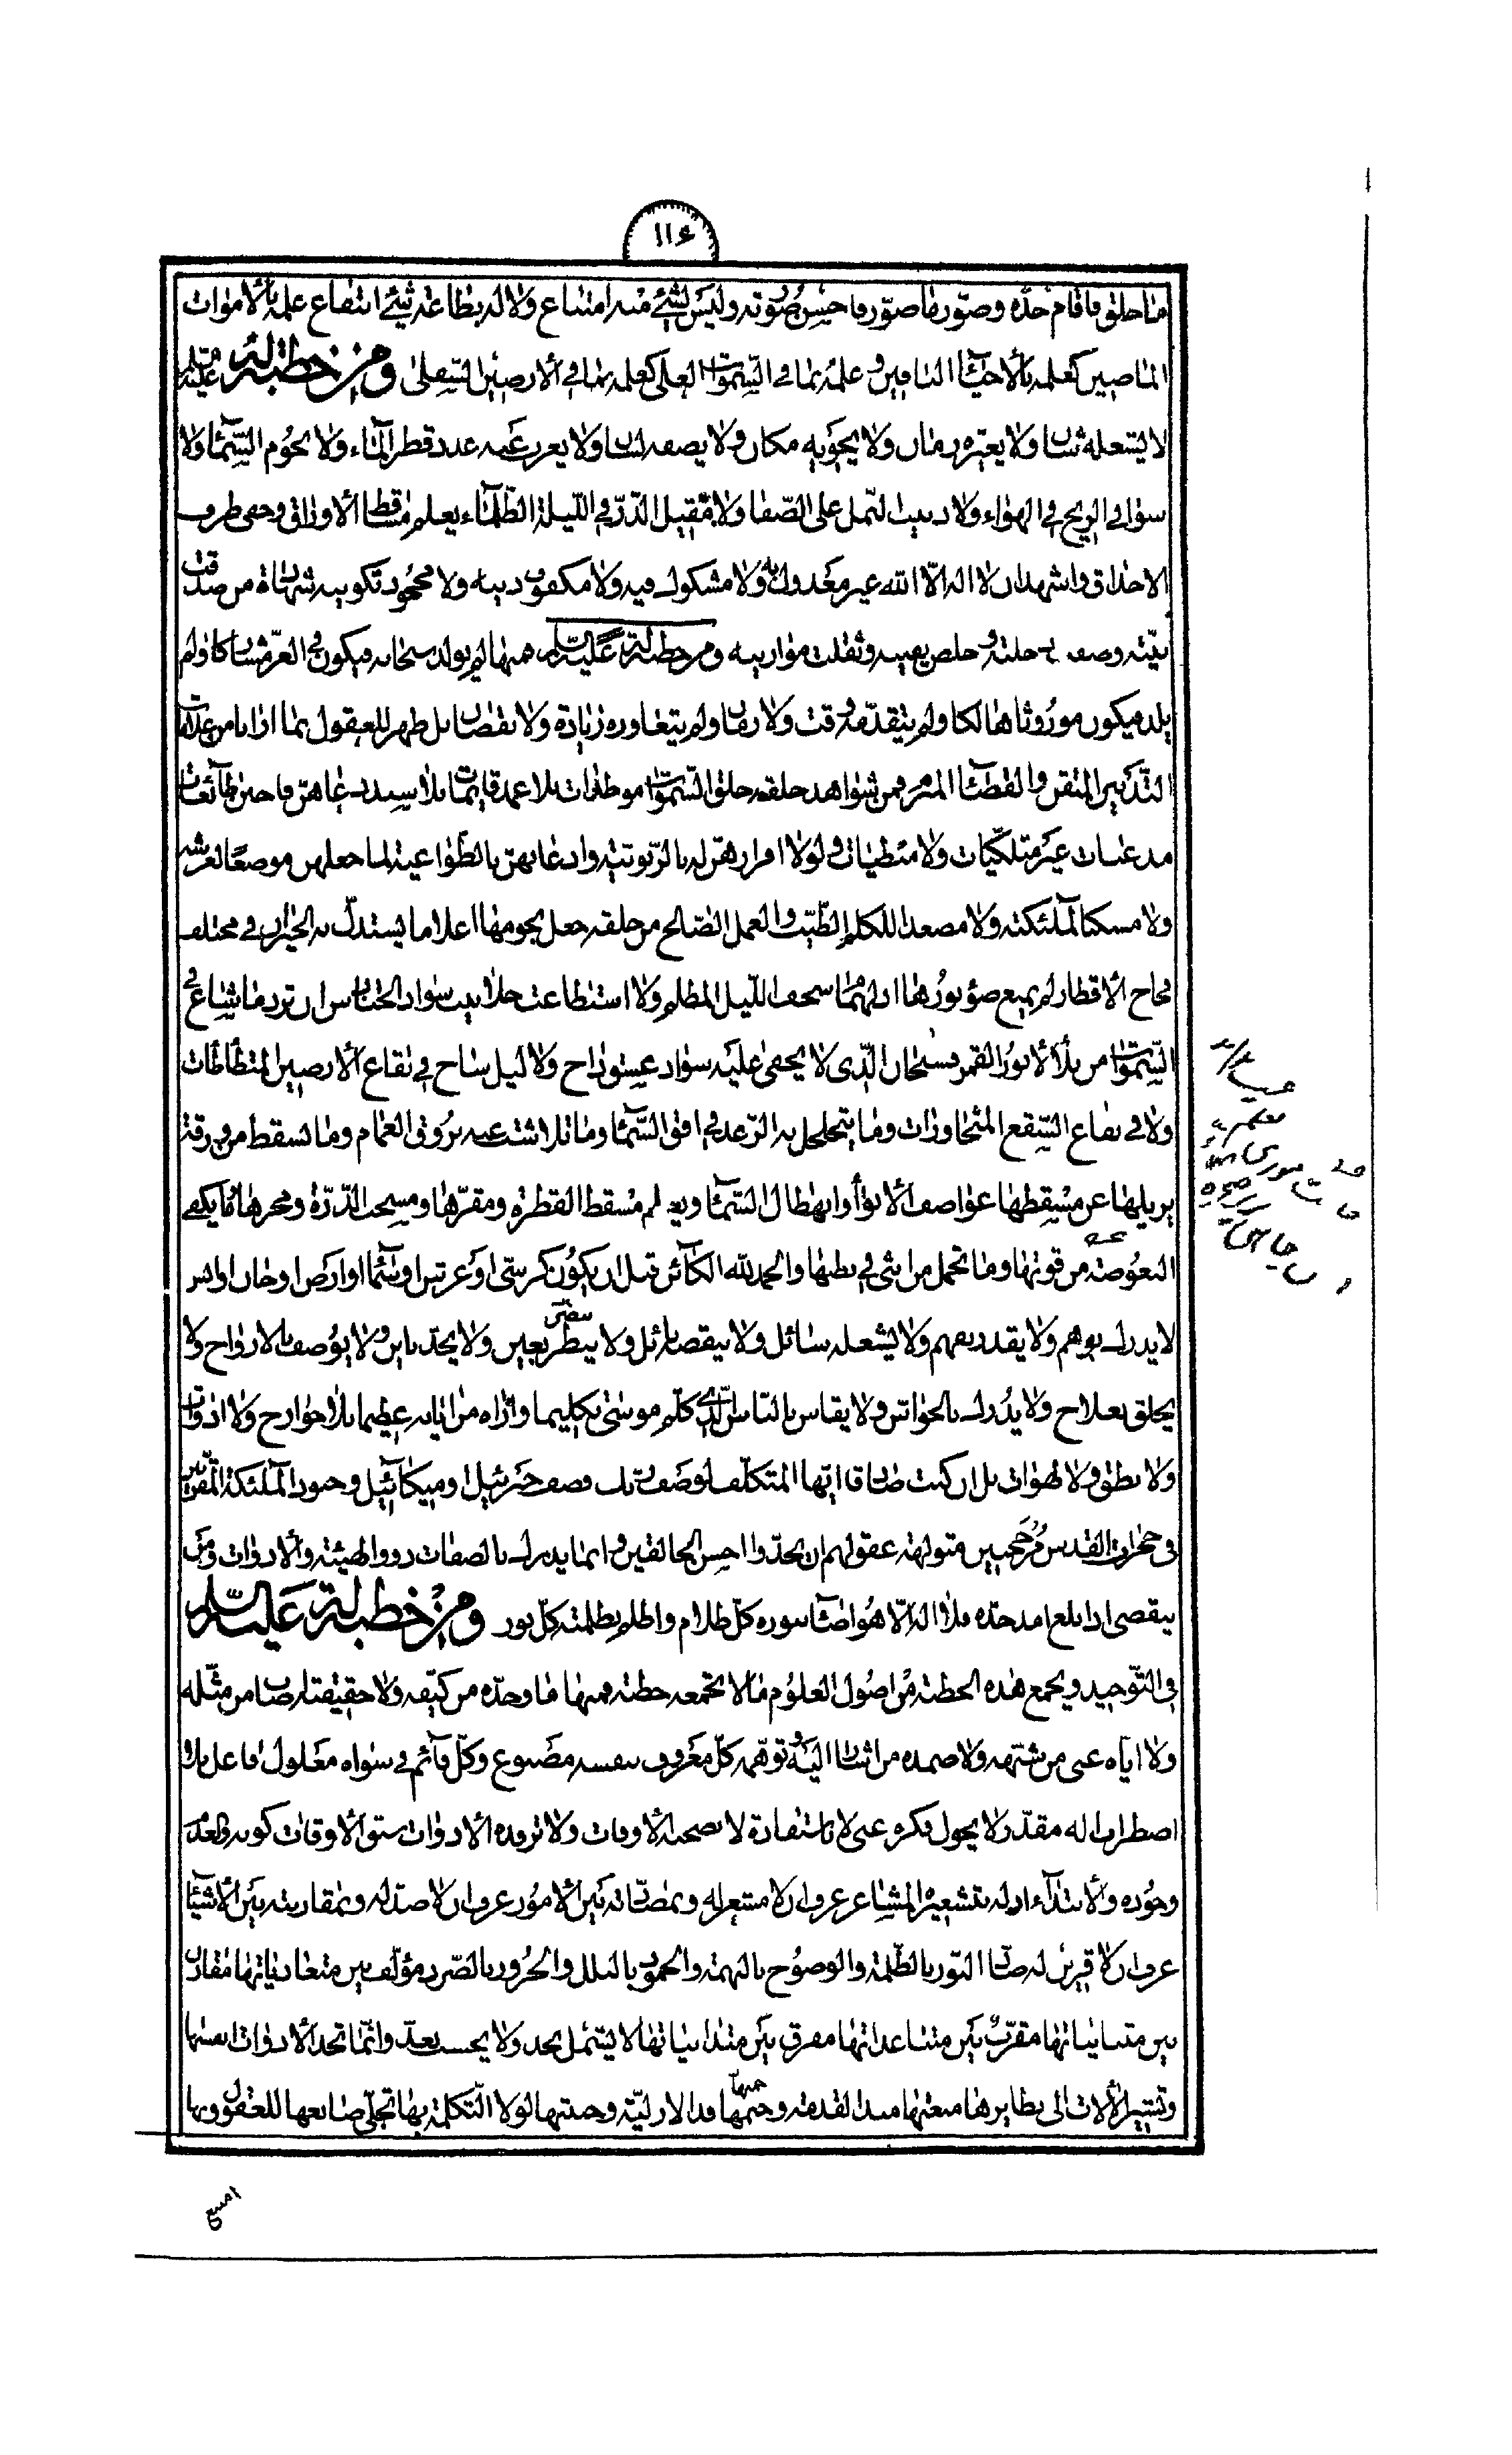 ١١۶
ما خلق فاقام حدّه و صوّر ما صوّر فاحسن صورته و ليس لشئ منه امتناع ولا له بطاعة شئ انتفاع علمه بالاموات
الماضين كعلمه بالاحياء الباقين و علمه بما فى السّموات العلى كعلمه بما فى الارضين السّفلى ومن خطبة له عليه السلم
لا يشغله شان ولا يغيّره زمان ولا يحويه مكان ولا يصفه لسان ولا يعزب عنه عدد قطر الماء ولا نجوم السّماء ولا
سوافى الريح فى الهواء ولا دبيب النّمل على الصّفا ولا مقيل الذّرّ فى اللّيلة الظّلماء يعلم مساقط الاوراق وخفى طرف
الاحداق واشهد ان لا اله الاّ الله غير معدول به ولا مشكوك فيه ولا مكفور دينه ولا مجحود تكوينه شهادة من صدقت
نيّته وصفت دخلته و خلص يقينه وثقلت موازينه ومن خطبة له عليه السّلم منها لم يولد سبحانه فيكون فى العزّ مشاركا ولم
يلد فيكون موروثا هالكا ولم يتقدّمه وقت ولا زمان ولم يتعاوره زيادة ولا نقصان بل ظهر للعقول بما ارانا من علامات
التّدبير المتقن والقضاء المبرم فمن شواهد خلقه خلق السّموات موطدات بلا عمد قايمات بلا سند دعاهنّ فاجبن طائعات
مذعنات غير متلكّيات ولا مبطيات و لولا اقرارهنّ له بالرّبوبيّة واذعانهنّ بالطّواعية لما جعلهن موضعًا لعرشه
ولا مسكنا لملئكته ولا مصعدا للكلم الطّيّب والعمل الصّالح من خلقه جعل نجومها اعلاما يستدلّ به الحيران فى مختلف
فجاج الاقطار لم يمنع ضوء نورها ادلهمام سجف اللّيل المظلم ولا استطاعت جلابيب سواد الحنادس ان ترد ما شاع فى
السّموات من تلألأ نور القمر فسبحان الّذى لا يخفى عليه سواد غسق داج ولا ليل ساج فى بقاع الارضين المتطأطئات
ولا فى يفاع السّفع المتجاورات وما يتجلجل به الرّعد فى افق السّماء وما تلاشت عنه بروق الغمام وما تسقط من ورقة
يزيلها عن مسقطها عواصف الانواء وانهطال السّماء ويعلم مسقط القطرة ومقرّها ومسحب الذّرّة ومجرها وما يكفى
البعوضة من قوتها وما تحمل من انثى فى بطنها والحمد لله الكائن قبل ان يكون كرسّى او عرش او سماء او ارض او جان او انس
لا يدرك بوهم ولا يقدر بفهم ولا يشغله سائل ولا ينقصه نائل ولا ينظر بعين ولا يحدّ باين ولا يوصف بالازواج ولا
يخلق بعلاج ولا يدرك بالحواسّ ولا يقاس بالنّاس الّذى كلّم موسى تكليما واراه من اياته عظيما بلا جوارح ولا ادوات
ولا نطق ولا لهوات بل ان كنت صادقا ايّها المتكلّف لوصف ربّك فصف جبرئيل و ميكائيل وجنود الملئكة المقرّبين
فى حجرات القدس مرجحنين متولهة عقولهم ان يحدّوا احسن الخالقين و انما يدرك بالصفات ذووا الهيئة والادوات ومن
ينقضى اذا بلغ امد حدّه فلا اله الاّ هو اضاء بنوره كلّ ظلام واظلم بظلمته كلّ نور ومن خطبة له عليه السّلم
فى التّوحيد ويجمع هذه الخطبة من اصول العلوم ما لا تجمعه خطبة فمنها ما وحّده من كيّفه ولا حقيقته اصاب من مثّله
ولا ايّاه عنى من شبّهه ولا صمده من اشار اليه و توهّمه كلّ معروف بنفسه مصنوع وكلّ قائم فى سواه معلول فاعل بلا
اضطراب اله مقدّر لا بجول فكرة غنى لا باستفادة لا تصحبه الاوقات ولا ترفده الادوات سبق الاوقات كونه والعدم
وجوده والابتداء ازله بتشعيره المشاعر عرف ان لا مشعر له وبمضادّته بين الامور عرف ان لا ضدّ له وبمقارنته بين الاشياء
عرف ان لا قرين له ضادّ النّور بالظّلمة والوضوح بالبهمة والجمود بالبلل والحرور بالصّرد مؤلّف بين متعادياتها مقارن
بين متبايناتها مقرّب بين متباعداتها مفرق بين متدانياتها لا يشمل بحد ولا يحسب بعدّ وانّما تحد الادوات انفسها
وتشير الالات الى نظايرها منعتها منذ القدمة وحمتها قد الازليّة وجنبتها لولا التّكملة بها تجلّى صانعها للعقول وبها